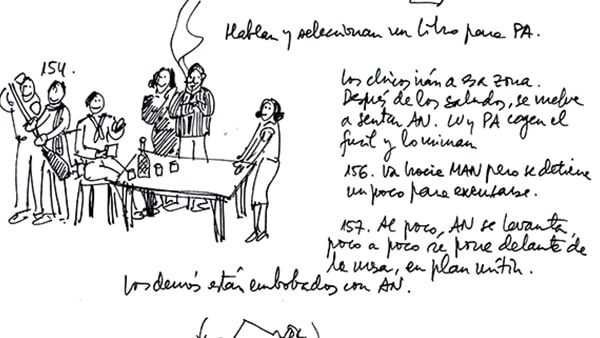 Hablan y seleccionan un libro para PA.
154.
Los chicos irán a esa zona.
Después de los saludos, se vuelve
a sentar AN. LU y PA cogen el
fusil y lo miran
156. Va hacia MAN pero se detiene
un poco para excusarse.
157. Al poco, AN se levanta,
poco a poco se pone delante de
la mesa, en plan mitin.
Los demás están embobados con AN.